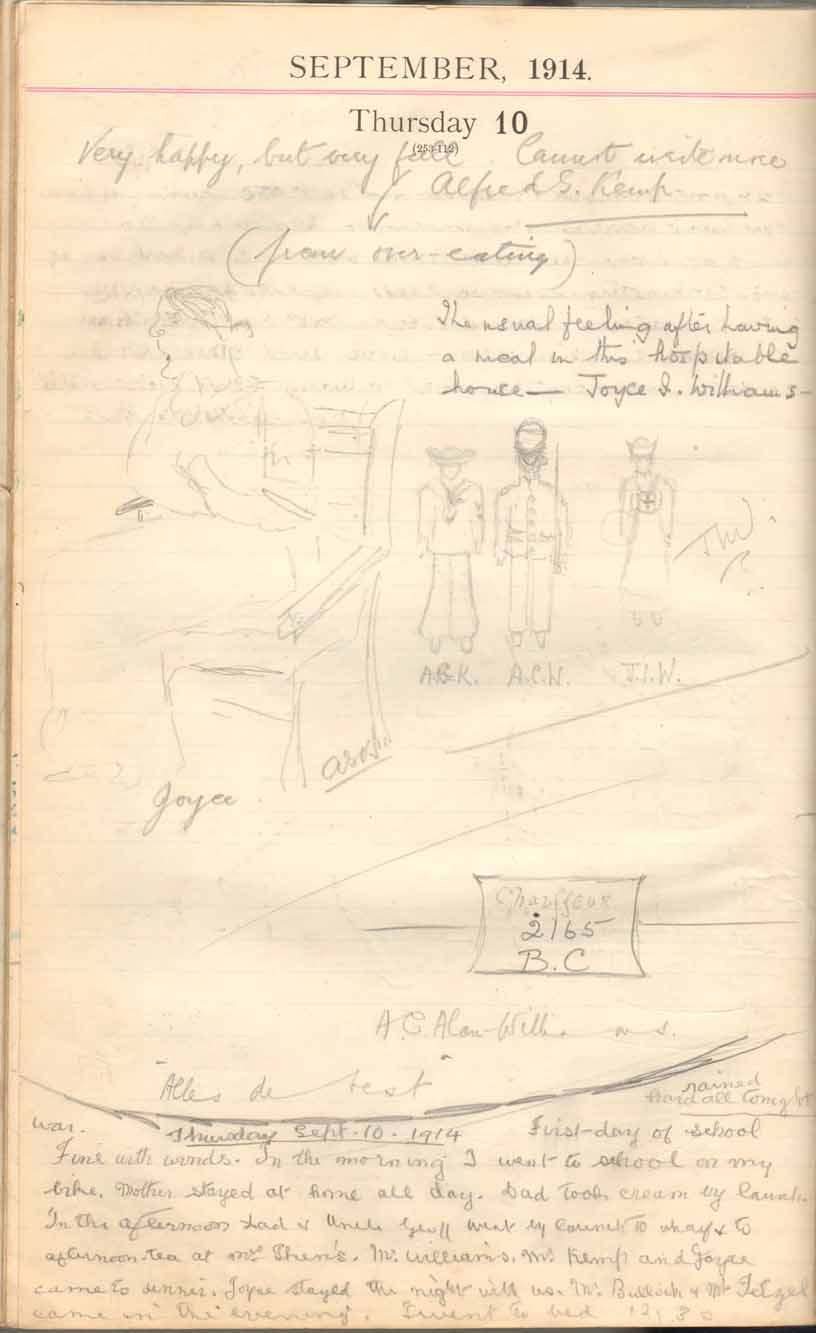 SEPTEMBER, 1914.
Thursday 10
(253-112)
Very happy, but very full Cannot write more
Alfred G. Kemp.
(from over-eating)
The usual feeling after having
a meal in this hospitable
house— Joyce I. Williams—
A.G.K. A.C.W. J.I.W.
Joyce
Chauffeur
2165
B.C
A.C. Alan-Williams.
"Alles de best"
rained
hard all tonight
war.
Thursday Sept. 10. 1914 First-day of school
Fine with winds. In the morning I went to school on my
bike. Mother stayed at home all day. Dad took cream by launch.
In the afternoon Dad & Uncle Geoff went by launch to wharf & to
afternoon-tea at Mrs. Mr. Williams, Mr. Kemp and Joyce
came to dinner. Joyce stayed the night with us. Mr. Bullock & Mr.
came in the evening. I went to bed